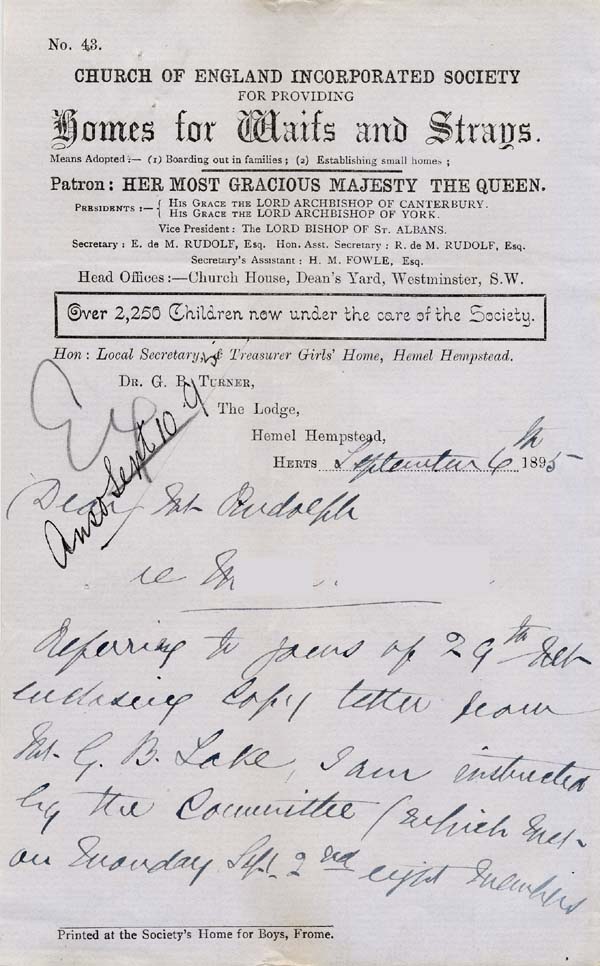 No. 43.
CHURCH OF ENGLAND INCORPORATED SOCIETY
FOR PROVIDING
Homes for Waifs and Strays.
Means Adopted :— (1) Boarding out in families ; (2) Establishing small homes ;
Patron: HER MOST GRACIOUS MAJESTY THE QUEEN.
PRESIDENTS :— { HIS GRACE THE LORD ARCHBISHOP OF CANTERBURY.
{ HIS GRACE THE LORD ARCHBISHOP OF YORK.
Vice President: The LORD BISHOP OF ST. ALBANS.
Secretary : E. de M. RUDOLF, Esq. Hon. Asst. Secretary : R. de M. RUDOLF, Esq.
Secretary's Assistant : H. M. FOWLE, Esq.
Head Offices:—Church House, Dean's Yard, Westminster, S.W.
Over 2,250 Children now under the care of the Society.
Hon : Local Secretary, & Treasurer Girls' Home, Hemel Hempstead.
DR. G. B. TURNER,
The Lodge,
Hemel Hempstead,
HERTS September 6th 1895
Ansd Sept 10
Dear Mr Rudolph
re M
Referring to yours of 29th
enclosing Copy letter from
Mr. G. B. Lake, I am instructed
by the Committee (which met
on Monday Sept. 2nd eight members
Printed at the Society's Home for Boys, Frome.